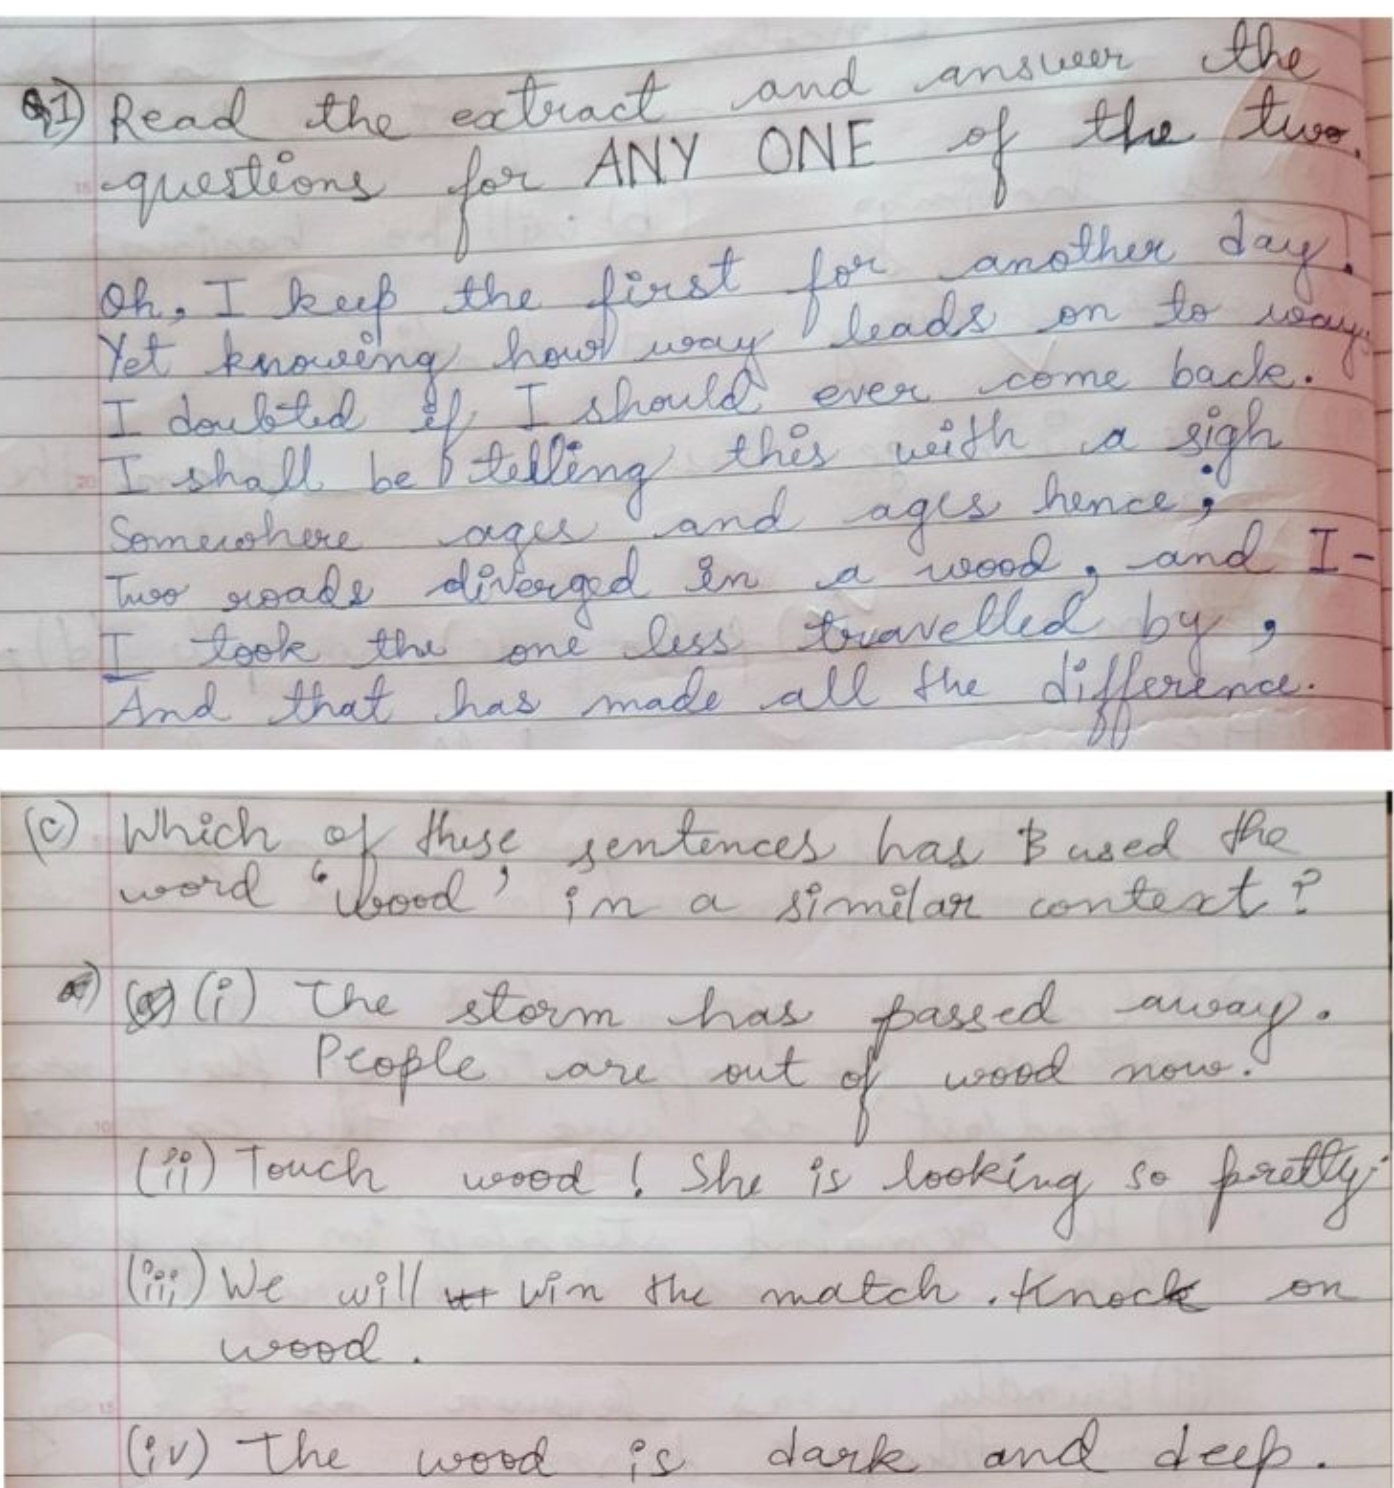 Q1) Read the extract and answer the
questions for ANY ONE of the two.
Oh, I keep the first for another day!
Yet knowing how way leads on to way,
I doubted if I should ever come back.
I shall be telling this with a sigh
Somewhere ages and ages hence;
Two roads diverged in a wood, and I-
I took the one less travelled by,
And that has made all the difference.
(c) Which of these sentences has used the
word 'wood' in a similar context?
(i) The storm has passed away.
People are out of wood now.
(ii) Touch wood! She is looking so pretty.
(iii) We will win the match. Knock on
wood.
(iv) The wood is dark and deep.